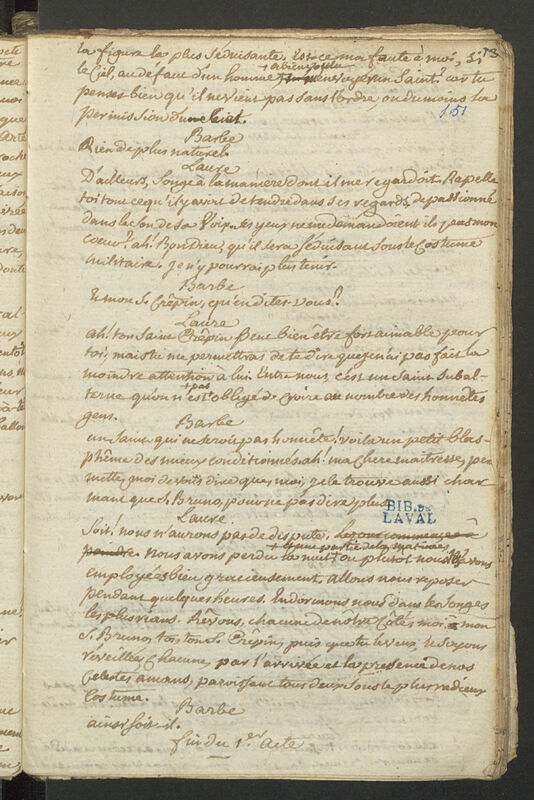 la figure la plus séduisante. Est-ce ma faute à moi, si 13
le Ciel, au défaut d'un homme, a bien voulu m'envoyer un Saint? car tu
penses bien qu'il ne vient pas sans l'ordre ou du moins la
permission du Ciel.
151
Barbe
Rien de plus naturel.
Laure
D'ailleurs, songe à la manière dont il me regardoit. Rapelle
toi tout ce qu'il y avoit de tendre dans ses regards, de passionné
dans le son de sa Voix. ses yeux ne me demandoient ils pas mon
coeur? ah! Bon Dieu, qu'il sera séduisant sous le Costume
militaire. je n'y pourrai plus tenir.
Barbe
Et mon S. Crêpin, qu'en dites-vous?
Laure
ah! ton Saint Crêpin peut bien être fort aimable pour
toi, mais tu me permettras de te dire que je n'ai pas fait la
moindre attention à lui. Entre nous, c'est un Saint subal-
terne qu'on n'est pas obligé de croire au nombre des honnêtes
gens.
Barbe
un Saint qui ne seroit pas honnête! voilà un petit blas-
phême des mieux conditionnés. ah! ma chere maitresse, per
mettez moi de vous dire que, moi, je le trouve aussi char
mant que S. Bruno, pour ne pas dire plus.
BIB. DE
LAVAL
Laure
Soit! nous n'aurons pas de dispute. le jour commence à
poindre. nous avons perdu la nuit et une partie de la matinée, ou plutôt nous les avons
employées bien gracieusement, allons nous reposer
pendant quelques heures. Endormons nous dans les songes
les plus rians. Rêvons, chacune de notre Côté, moi à mon
S. Bruno, toi à ton S. Crêpin, puis que tu le veux, et soyons
réveillées chacune, par l'arrivée et la presence de nos
Celestes amans, paroissant tous deux sous le plus radieux
Costume.
Barbe
ainsi soit-il.
fin du 1.er acte